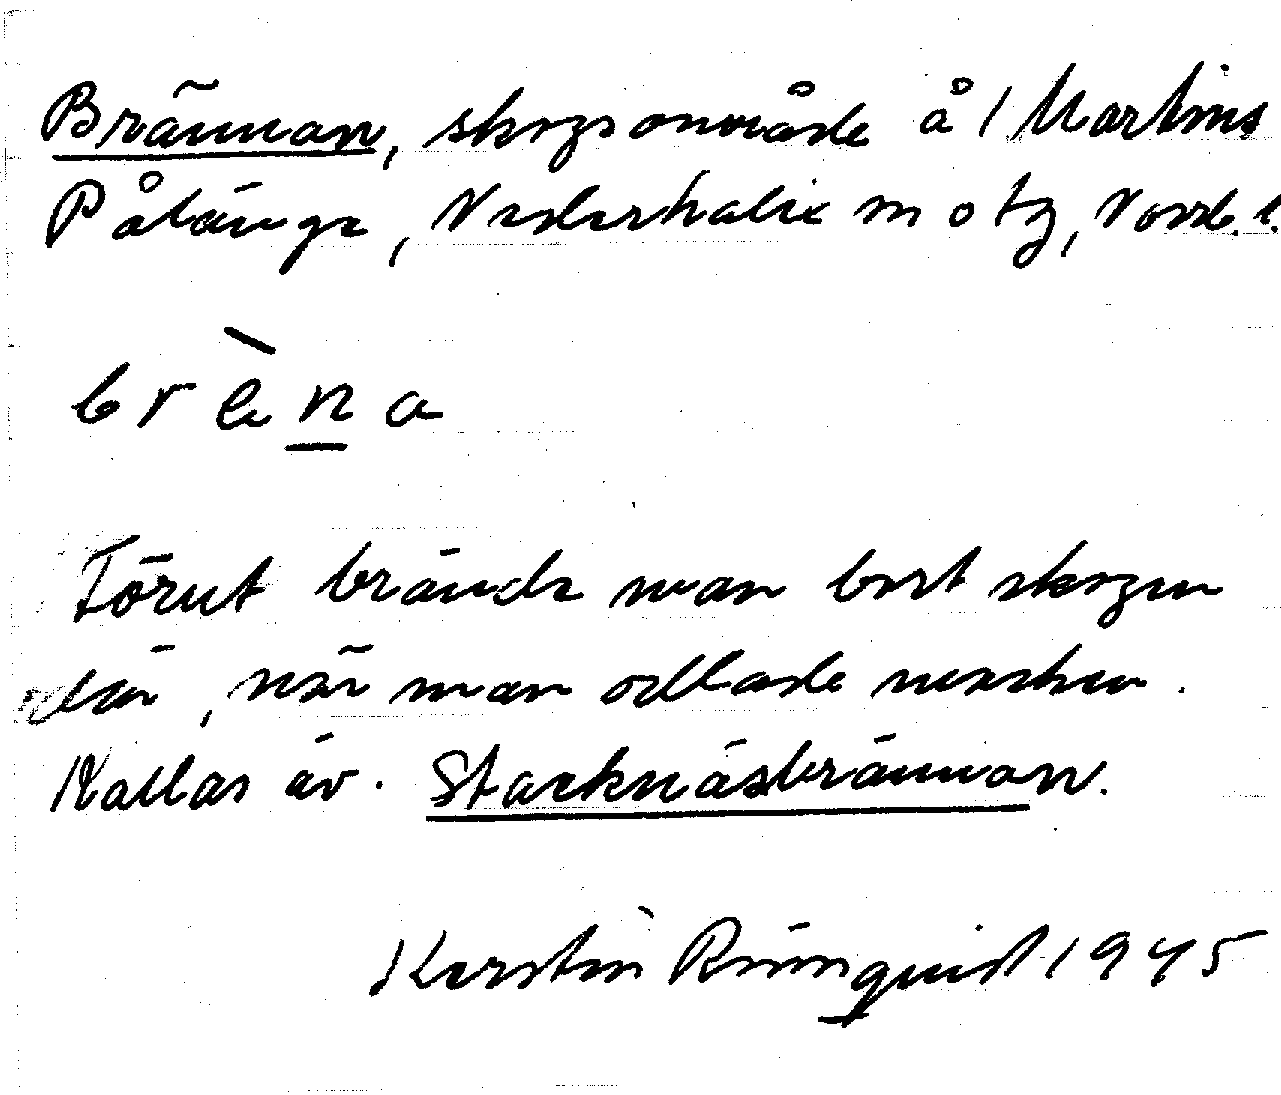 Brännan, skogsområde å 1 Martins
Pålänge, Nederkalix m o tg, Norrb. l.
brèna
Förut brände man bort skogen
där, när man odlade marken.
Kallas äv. Starknäsbrännan.
Kerstin Rönnquist 1945